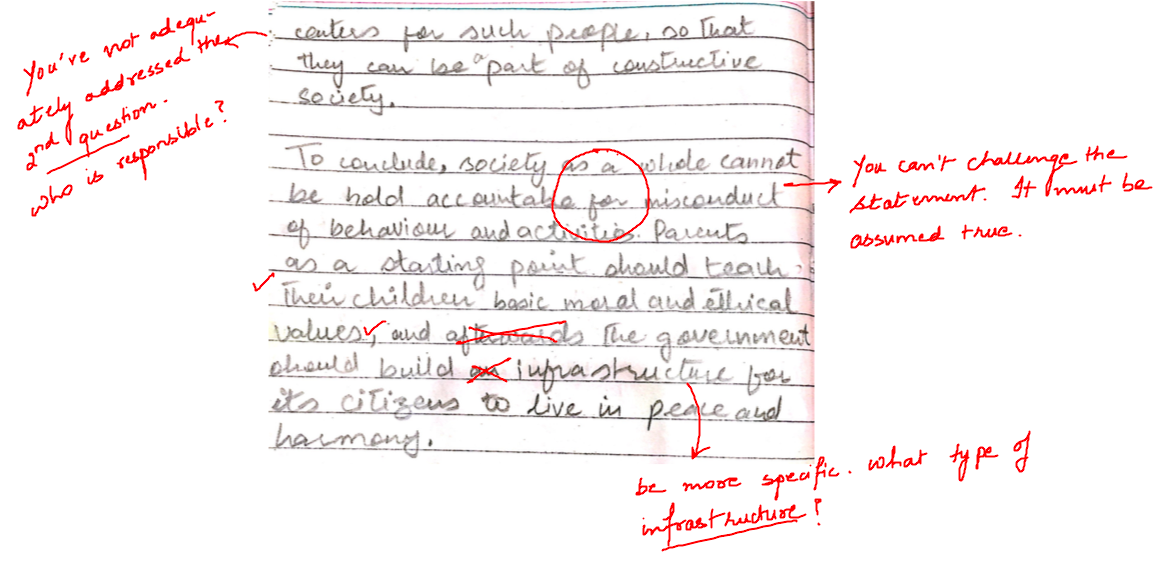 You've not adequ-
ately addressed the
2nd question.
who is responsible?
centers for such people, so that
they can be a part of constructive
society.
To conclude, society as a whole cannot
be hold accountable for misconduct
of behaviour and activities. Parents
as a starting point should teach
their children basic moral and ethical
values, and afterwards the government
should build an infrastructure for
its citizens to live in peace and
harmony.
You can't challenge the
statement. It must be
assumed true.
be more specific. what type of
infrastructure?